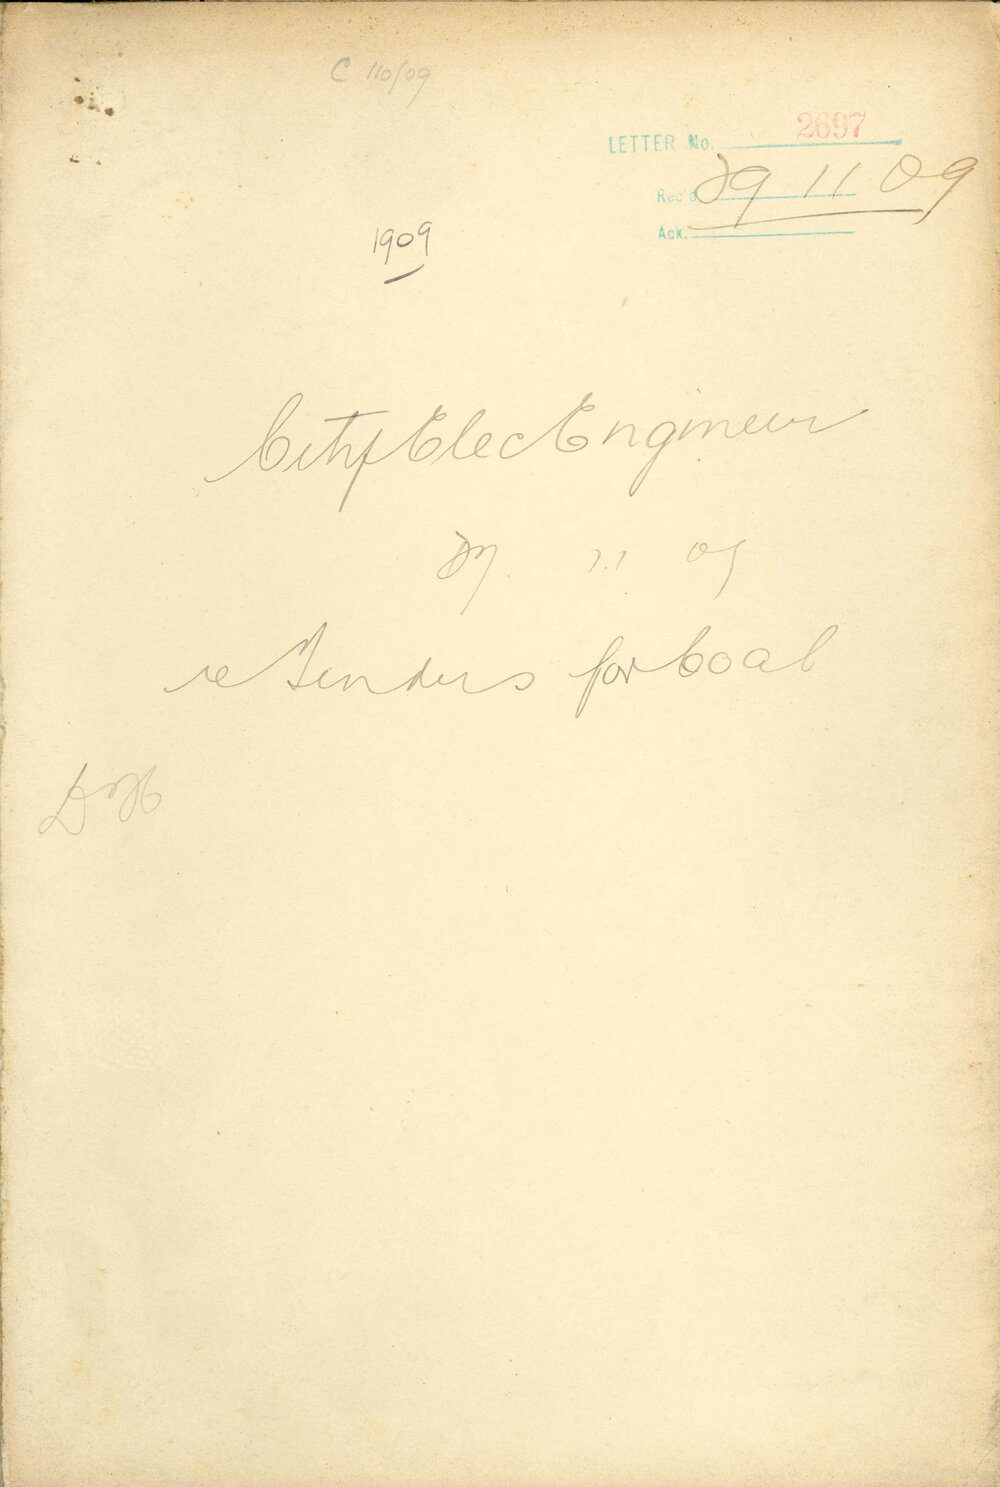 C 110/09
LETTER No. 2697
Rec'd 29 11 09
Ack.
1909
City Elec Engineer
29. 11 09
re Tenders for Coal